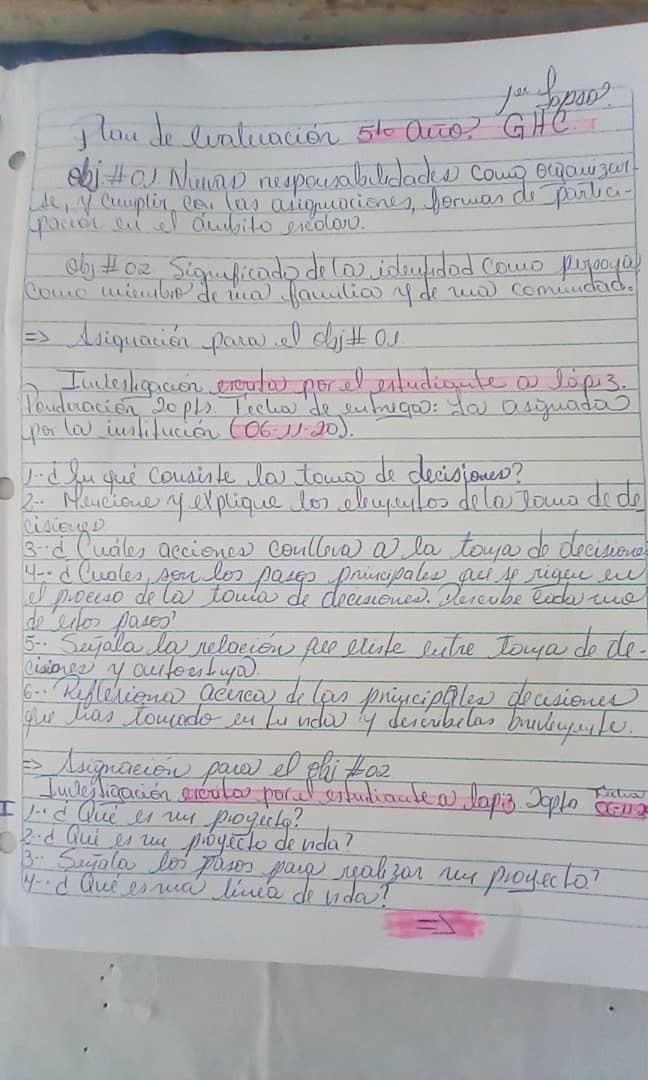 1er Lapso.
Plan de evaluación 5to Año? GHC.
obj #01 Nuevas responsabilidades como organizar-
se, y cumplir con las asignaciones, formas de partici-
pación en el ámbito escolar.
Obj #02 Significado de la identidad como persona,
como miembro de una familia y de una comunidad.
=> Asignación para el obj # 01
Investigación escrita por el estudiante a lápiz.
Ponderación 20 pts. Fecha de entrega: La asignada
por la institución (06-11-20).
1-. ¿En qué consiste la toma de decisiones?
2-. Mencione y explique los elementos de la toma de de
cisiones
3-. ¿Cuáles acciones conlleva a la toma de decisiones
4-. ¿Cuales son los pasos principales que se rigen en
el proceso de la toma de decisiones. Describe cada uno
de estos pasos?
5-. Señala la relación que existe entre toma de de-
cisiones y autoestima.
6-. Reflexiona acerca de las principales decisiones
que has tomado en tu vida y descríbelas brevemente.
=> Asignación para el obj #02
Investigación escrita por el estudiante a lapiz. 20pts Fecha 06-11-20
1-. ¿Qué es un proyecto?
2-. ¿Qué es un proyecto de vida?
3-. Señala los pasos para realizar un proyecto?
4-. ¿Qué es una línea de vida?
=>